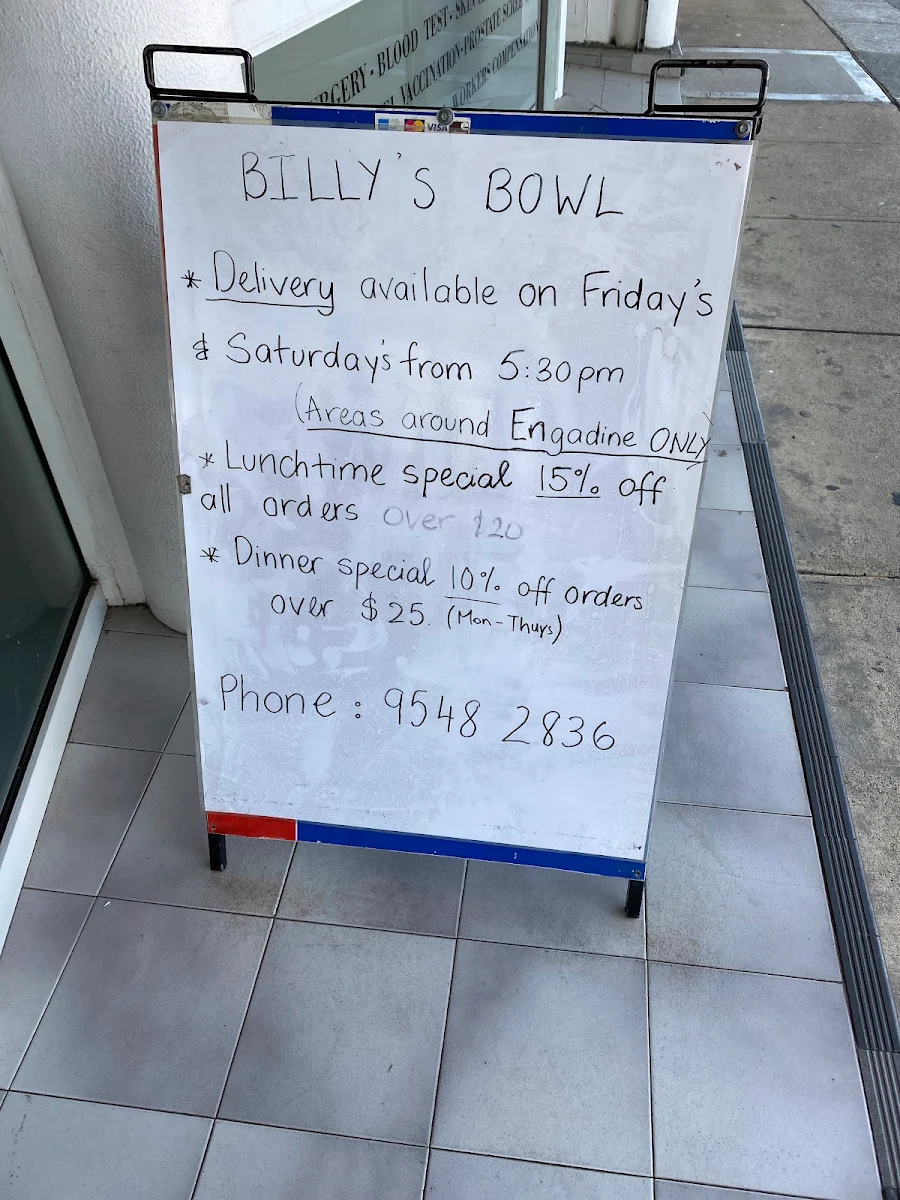 URGERY · BLOOD TEST · SKIN
VACCINATION · PROSTATE SCREE
WORKERS COMPENSATION
VISA
BILLY'S BOWL
* Delivery available on Friday's
& Saturday's from 5:30pm
(Areas around Engadine ONLY)
* Lunchtime special 15% off
all orders over $20
* Dinner special 10% off orders
over $25. (Mon-Thurs)
Phone : 9548 2836